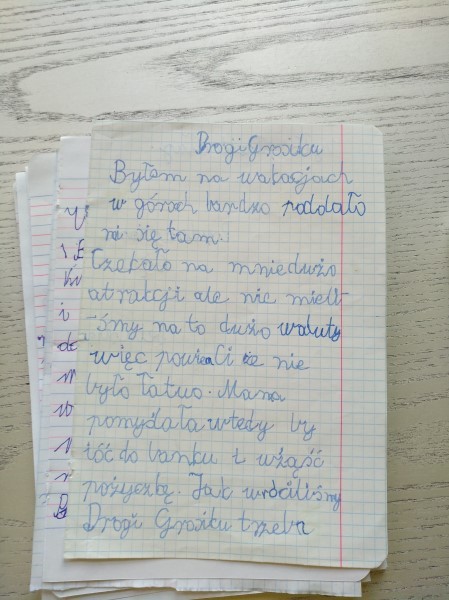 Drogi Grosiku
Byłem na wakacjach
w górach bardzo poddało
mi się tam!
Czekało na mnie dużo
atrakcji ale nie mieli
-śmy na to dużo waluty
więc powiem Ci że nie
było łatwo. Mama
pomyślała wtedy by
iść do banku i wźąść
pożyczkę. Jak wróciliśmy
Drogi Grosiku trzeba